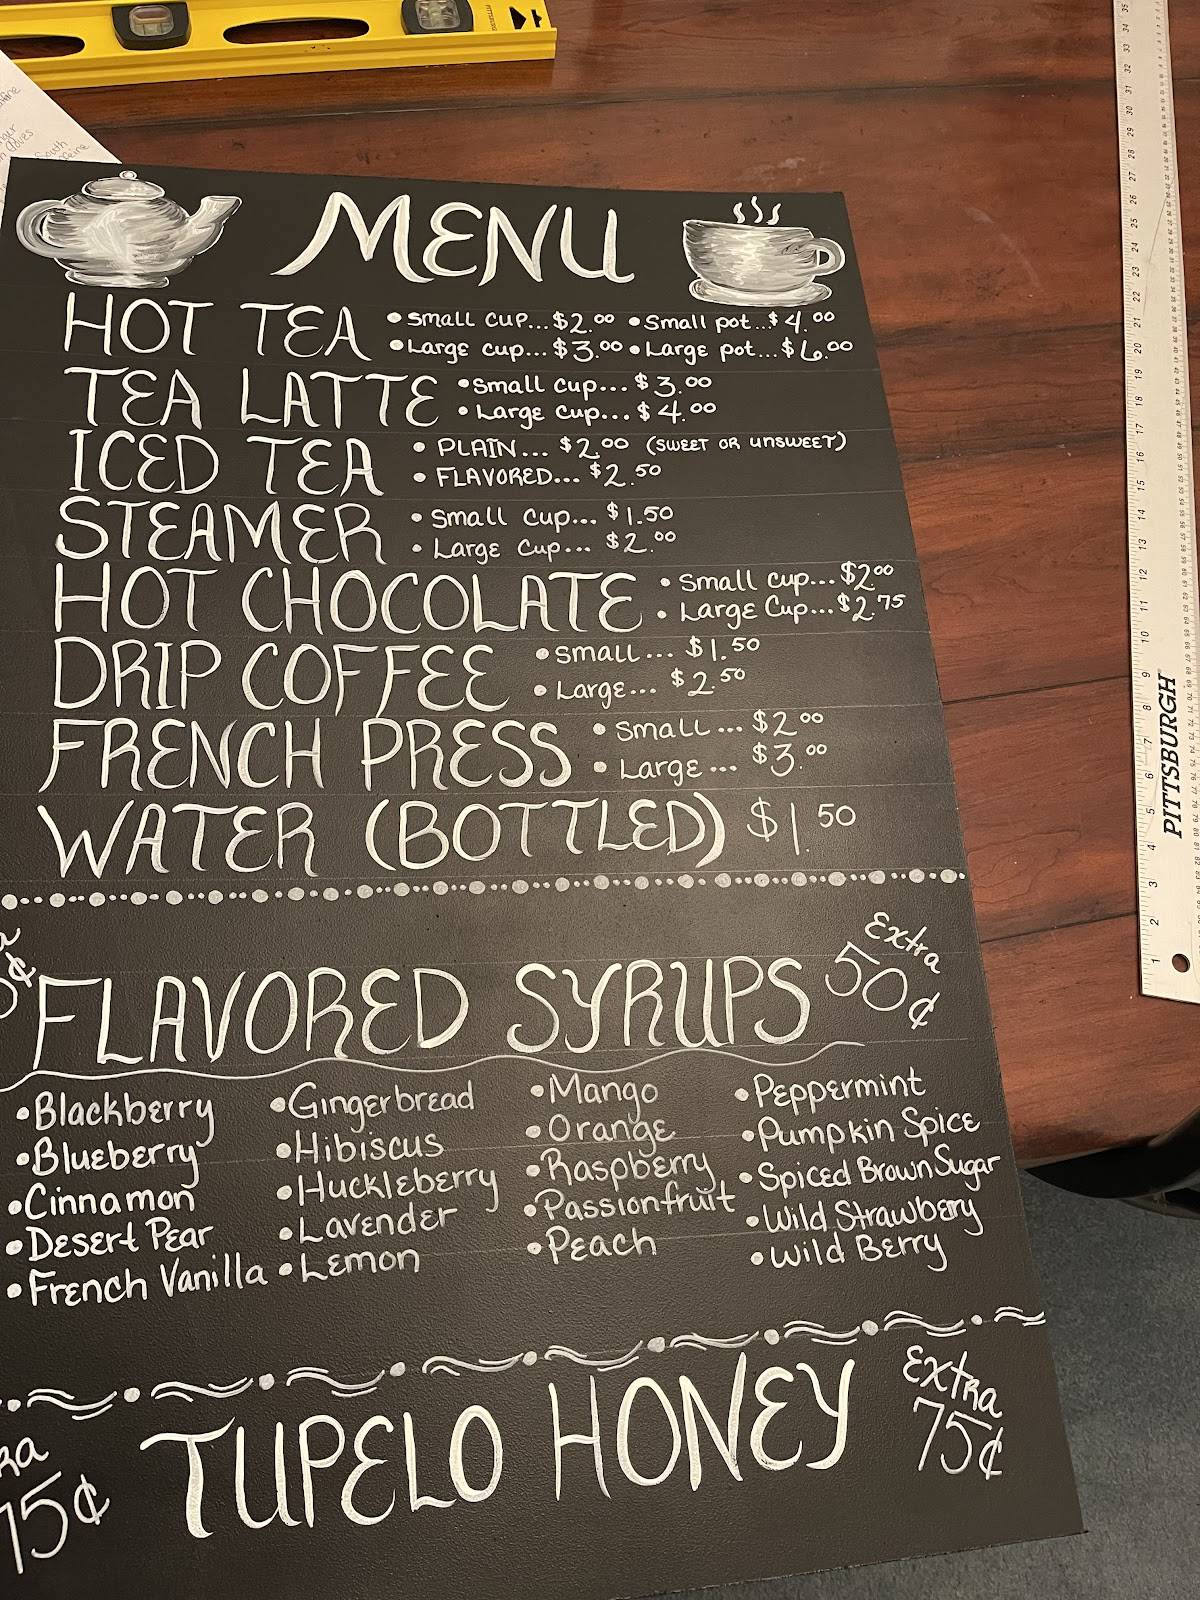 MENU
HOT TEA • Small cup...$2.00 • Small pot...$4.00
• Large cup...$3.00 • Large pot...$6.00
TEA LATTE • Small cup...$3.00
• Large cup...$4.00
ICED TEA • PLAIN...$2.00 (SWEET OR UNSWEET)
• FLAVORED...$2.50
STEAMER • Small cup...$1.50
• Large cup...$2.00
HOT CHOCOLATE • Small cup...$2.00
• Large Cup...$2.75
DRIP COFFEE • Small...$1.50
• Large...$2.50
FRENCH PRESS • Small...$2.00
• Large...$3.00
WATER (BOTTLED) $1.50
FLAVORED SYRUPS Extra 50¢
• Blackberry
• Blueberry
• Cinnamon
• Desert Pear
• French Vanilla
• Gingerbread
• Hibiscus
• Huckleberry
• Lavender
• Lemon
• Mango
• Orange
• Raspberry
• Passionfruit
• Peach
• Peppermint
• Pumpkin Spice
• Spiced Brown Sugar
• Wild Strawberry
• Wild Berry
75¢ TUPELO HONEY Extra 75¢
PITTSBURGH